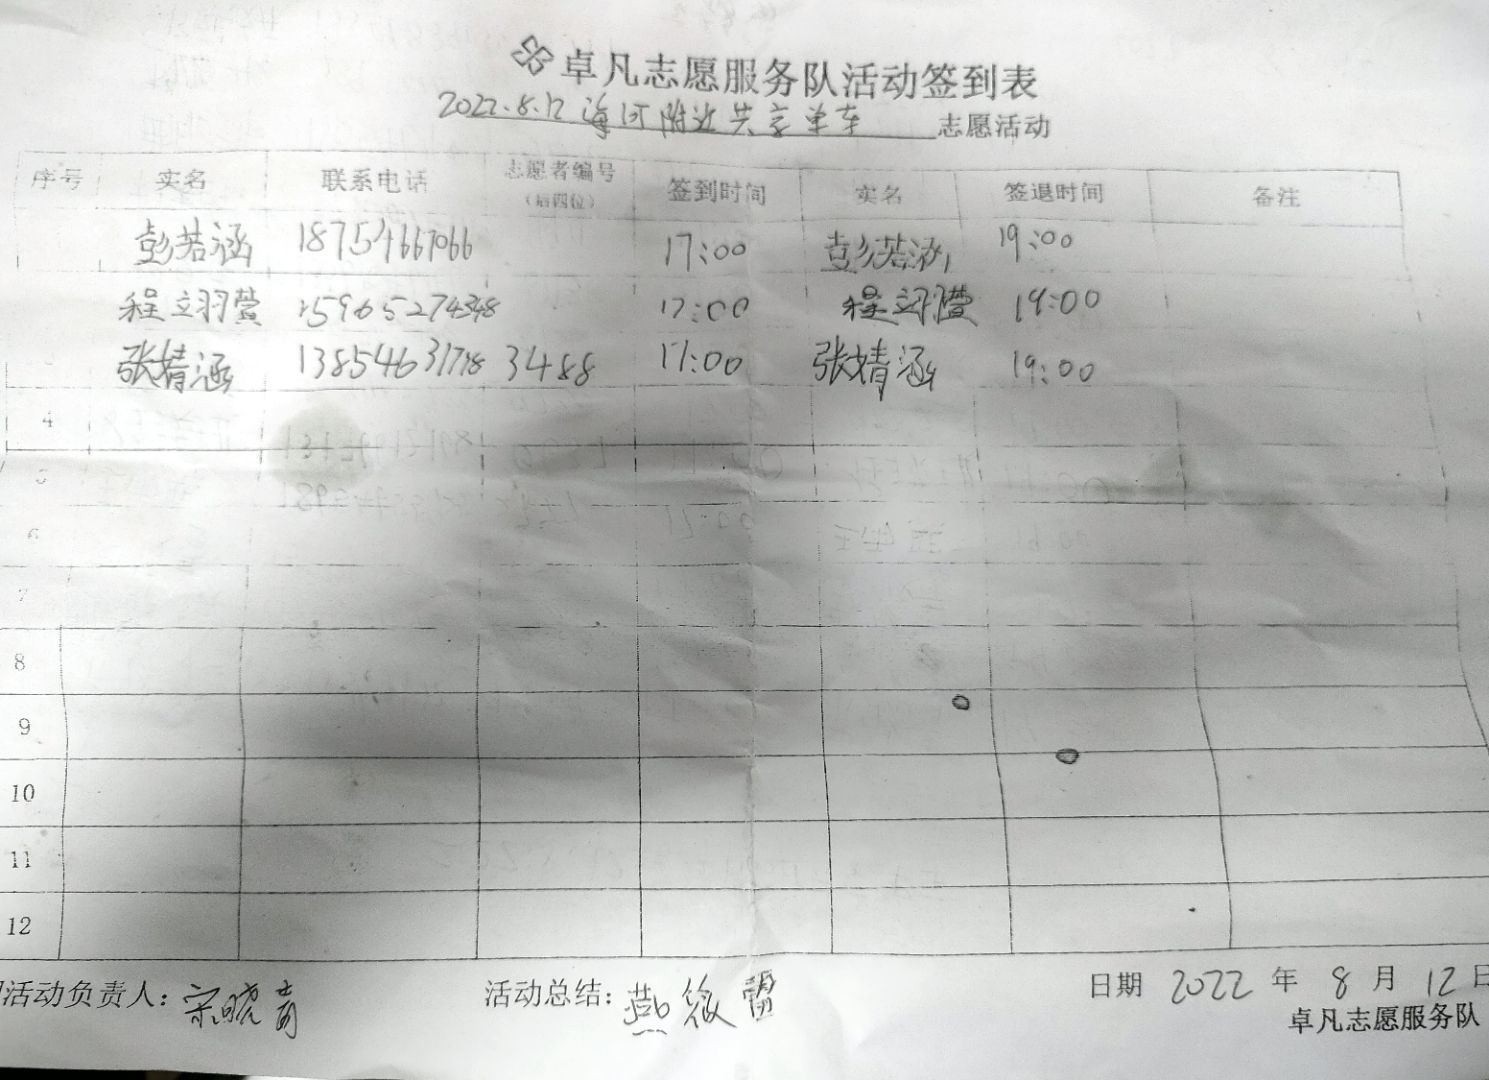 卓凡志愿服务队活动签到表
2022.8.12 海河附近共享单车 志愿活动
序号 实名 联系电话 志愿者编号（后四位） 签到时间 实名 签退时间 备注
彭若涵 18754667066 17:00 彭若涵 19:00
程立羽萱 15965274348 17:00 程立羽萱 19:00
张婧涵 13854631778 3488 17:00 张婧涵 19:00
4
5
6
7
8
9
10
11
12
活动负责人：宋晓菁 活动总结： 日期 2022 年 8 月 12 日
卓凡志愿服务队